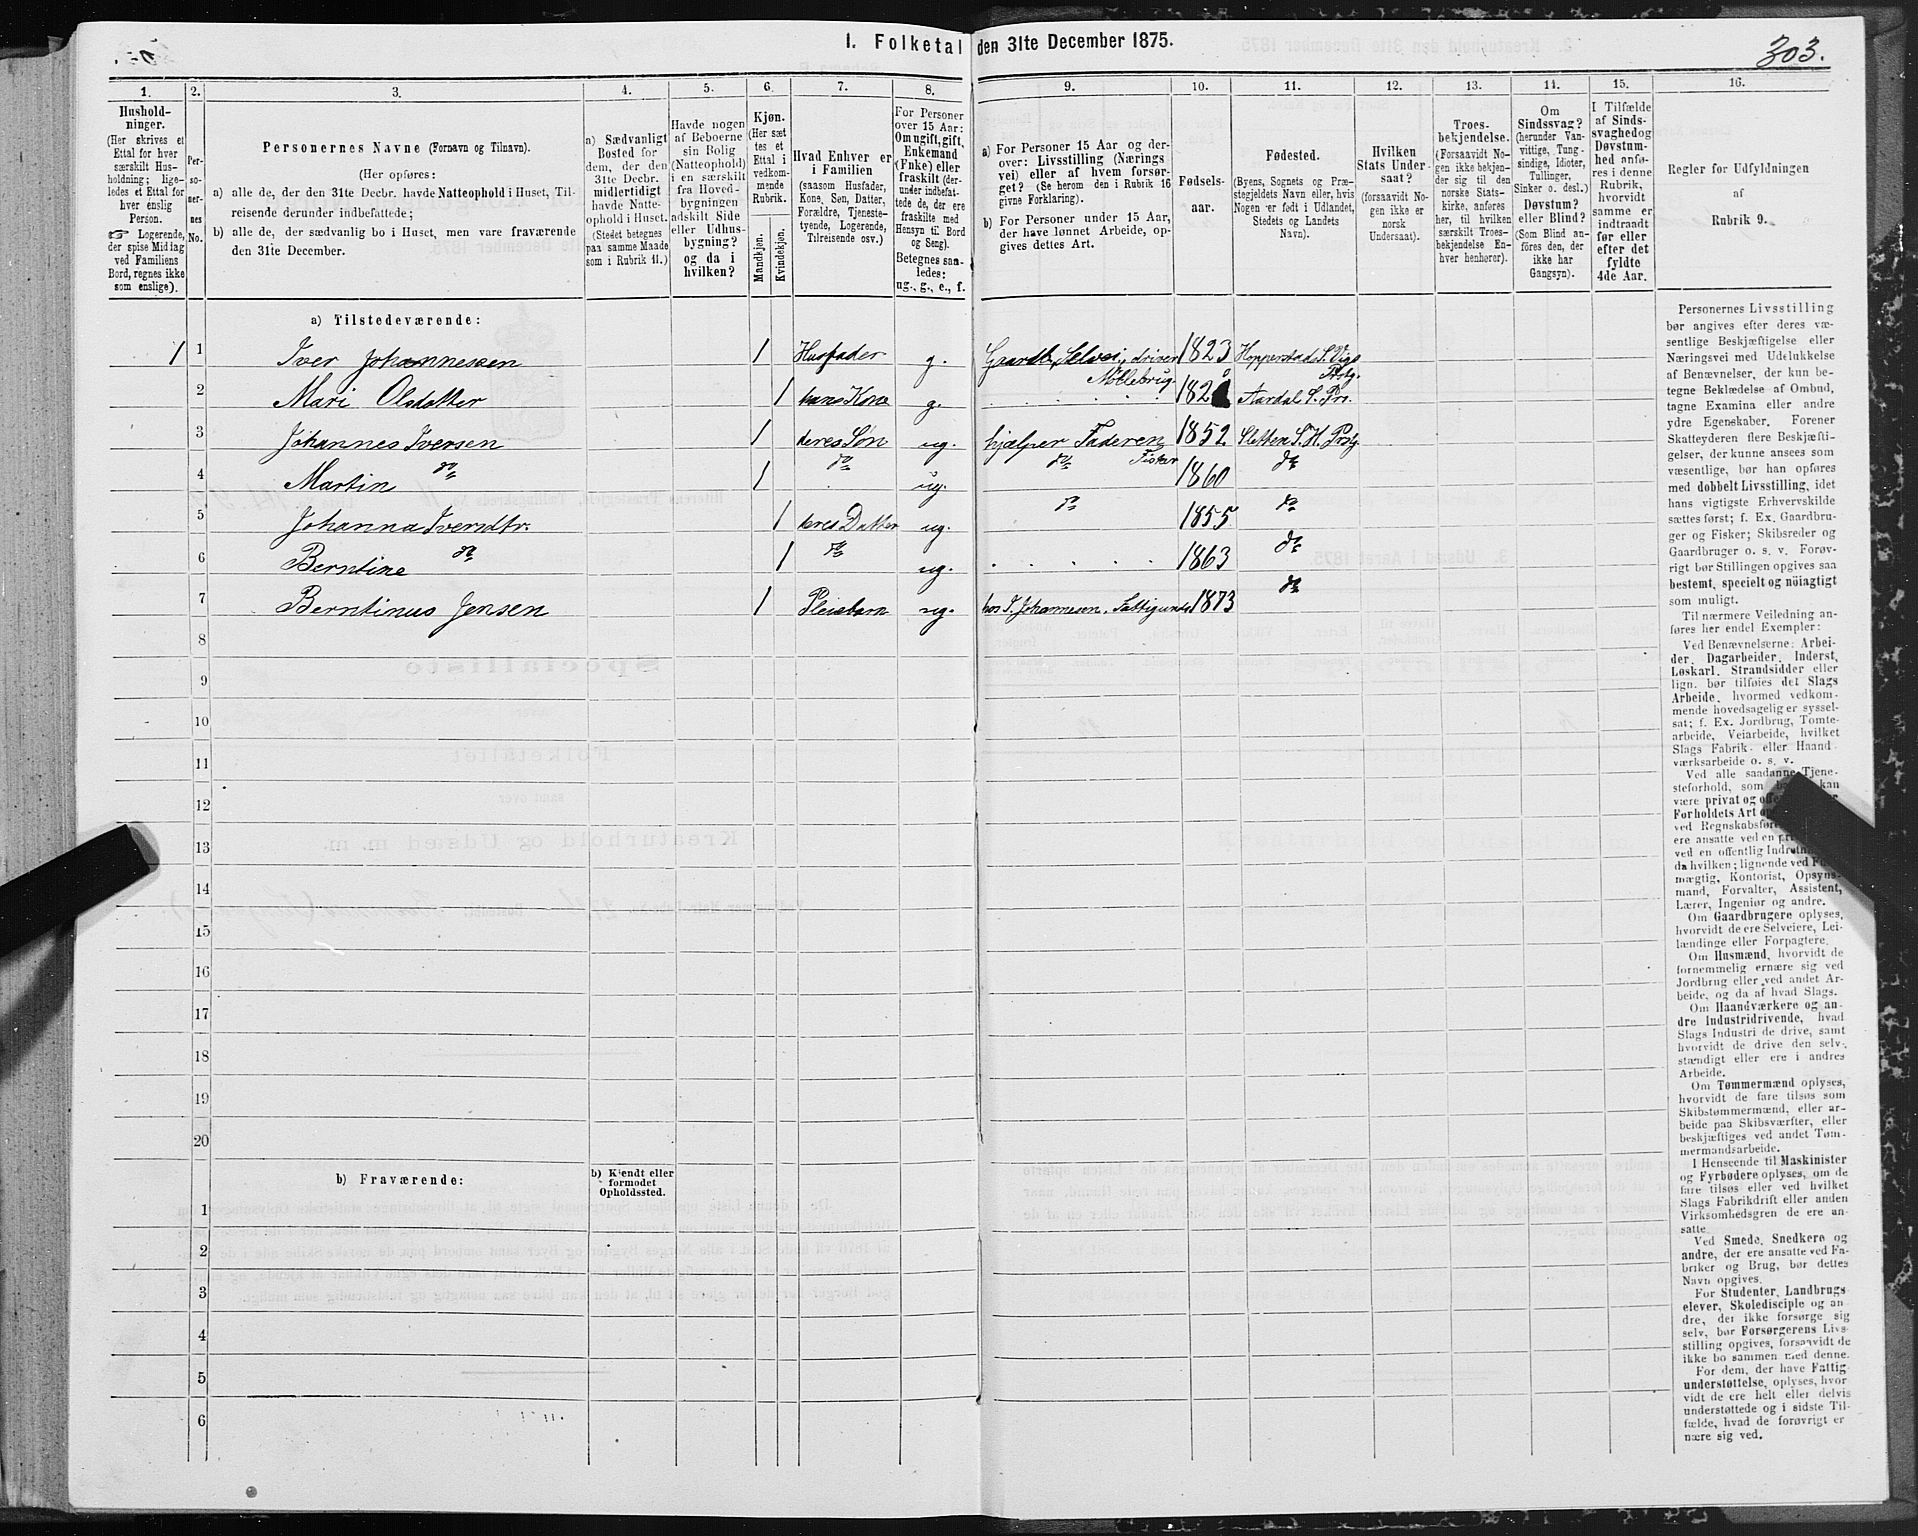 1. Folketal den 31te December 1875.
303.
1. 2. 3. 4. 5. 6. 7. 8. 9. 10. 11. 12. 13. 14. 15. 16.
Hushold-
ninger.
(Her skrives et
Ettal for hver
særskilt Hus-
holdning; lige-
ledes et Ettal for
hver enslig
Person.
☞ Logerende,
der spise Middag
ved Familiens
Bord, regnes ikke
som enslige).
Per-
so-
ner-
nes
No.
Personernes Navne (Fornavn og Tilnavn).
(Her opføres:
a) alle de, der den 31te Decbr. havde Natteophold i Huset, Til-
reisende derunder indbefattede;
b) alle de, der sædvanlig bo i Huset, men vare fraværende
den 31te December.
a) Sædvanligt
Bosted for
dem, der den
31te Decbr.
midlertidigt
havde Natte-
ophold i Huset.
(Stedet betegnes
paa samme Maade
som i Rubrik 11.)
Havde nogen
af Beboerne
sin Bolig
(Natteophold)
i en særskilt
fra Hoved-
bygningen
adskilt Side
eller Udhus-
bygning?
og da i
hvilken?
Kjøn.
(Her sæt
tes et
Ettal i
vedkom-
mende
Rubrik.
Mandkjøn.
Kvindekjøn.
Hvad Enhver er
i Familien
(saasom Husfader,
Kone, Søn, Datter,
Forældre, Tjeneste-
tyende, Logerende,
Tilreisende osv.)
For Personer
over 15 Aar:
Om ugift, gift,
Enkemand
(Enke) eller
fraskilt (der-
under indbefat-
tede de, der ere
fraskilte med
Hensyn til Bord
og Seng).
Betegnes saa-
ledes:
ug., g., e., f.
a) For Personer 15 Aar og der-
over: Livsstilling (Nærings
vei) eller af hvem forsør-
get? (Se herom den i Rubrik 16
givne Forklaring).
b) For Personer under 15 Aar,
der have lønnet Arbeide, op-
gives dettes Art.
Fødsels-
aar.
Fødested.
(Byens, Sognets og Præ-
stegjeldets Navn eller, hvis
Nogen er født i Udlandet,
Stedets og Landets
Navn).
Hvilken
Stats Under-
saat?
(forsaavidt No-
gen ikke er
norsk
Undersaat).
Troes-
bekjendelse.
(Forsaavidt No-
gen ikke bekjen-
der sig til den
norske Stats-
kirke, anføres
her, til hvilken
særskilt Troes-
bekjendelse En-
hver henhører).
Om
Sindssvag?
(herunder Van-
vittige, Tung-
sindige, Idioter,
Tullinger,
Sinker o. desl.)
Døvstum?
eller Blind?
(Som Blind an-
føres den, der
ikke har
Gangsyn).
I Tilfælde
af Sinds-
svaghed og
Døvstum-
hed anfø-
res i denne
Rubrik,
hvorvidt
samme er
indtraadt
før eller
efter det
fyldte
4de Aar.
Regler for Udfyldningen
af
Rubrik 9.
a) Tilstedeværende:
1 1 Iver Johannessen 1 Husfader g. Gaardb, Selvei., driver 1823 Hopperstad S. Vigs
Møllebrug. Pstg.
2 Mari Olsdatter 1 hans Kone g. 182 Aardal S. Pr.
3 Johannes Iversen 1 deres Søn ug. hjælper Faderen 1852 Sletten S. H. Pstg.
4 Martin do 1 do ug. do Fisker 1860 do
5 Johanna Iversdtr. 1 deres Datter ug. do 1855 do
6 Berntine do 1 do ug. 1863 do
7 Berntinus Jensen 1 Pleiebarn ug. hos I. Johannesen. Fattigunds 1873 do
8
9
10
11
12
13
14
15
16
17
18
19
20
b) Fraværende:
b) Kjendt eller
formodet
Opholdssted.
1
2
3
4
5
6
Personernes Livsstilling
bør angives efter deres væ-
sentlige Beskjæftigelse eller
Næringsvei med Udelukkelse
af Benævnelser, der kun be-
tegne Beklædelse af Ombud,
tagne Examina eller andre
ydre Egenskaber. Forener
Skatteyderen flere Beskjæfti-
gelser, der kunne ansees som
væsentlige, bør han opføres
med dobbelt Livsstilling, idet
hans vigtigste Erhvervskilde
sættes først; f. Ex. Gaardbru-
ger og Fisker; Skibsreder og
Gaardbruger o. s. v. Forøv-
rigt bør Stillingen opgives saa
bestemt, specielt og nöiagtigt
som muligt.
Til nærmere Veiledning an-
føres her endel Exempler:
Ved Benævnelserne: Arbei-
der, Dagarbeider, Inderst,
Løskarl, Strandsidder eller
lign. bør tilføies det Slags
Arbeide, hvormed vedkom-
mende hovedsagelig er syssel-
sat; f. Ex. Jordbrug, Tomte-
arbeide, Veiarbeide, hvilket
Slags Fabrik- eller Haand
værksarbeide o. s. v.
Ved alle saadanne Tjene-
steforhold, som kan
være privat og
Forholdets Art
ved Regnskabsfør
ere ansatte ved en
ved en offentlig Indretn
da hvilken; lignende ved
mægtig, Kontorist, Opsyns-
mand, Forvalter, Assistent,
Lærer, Ingeniør og andre.
Om Gaardbrugere oplyses,
hvorvidt de ere Selveiere, Lei-
lændinge eller Forpagtere.
Om Husmænd, hvorvidt de
fornemmelig ernære sig ved
Jordbrug eller ved andet Ar-
beide, og da af hvad Slags.
Om Haandværkere og an-
dre Industridrivende, hvad
Slags Industri de drive, samt
hvorvidt de drive den selv-
stændigt eller ere i andres
Arbeide.
Om Tømmermænd oplyses,
hvorvidt de fare tilsøs som
Skibstømmermænd, eller ar-
beide paa Skibsværfter, eller
beskjæftiges ved andet Tøm-
mermandsarbeide.
I Henseende til Maskinister
og Fyrbødere oplyses, om de
fare tilsøs eller ved hvilket
Slags Fabrikdrift eller anden
Virksomhedsgren de ere an-
satte.
Ved Smede, Snedkere og
andre, der ere ansatte ved Fa-
briker og Brug, bør dettes
Navn opgives.
For Studenter, Landbrugs
elever, Skoledisciple og an
dre, der ikke forsørge sig
selv, bør Forsørgerens Livs-
stilling opgives, forsaavidt de
ikke bo sammen med denne.
For dem, der have Fattig
understøttelse, oplyses, hvor
vidt de ere helt eller delvis
understøttede og i sidste Til-
fælde, hvad de forøvrigt er
nære sig ved.